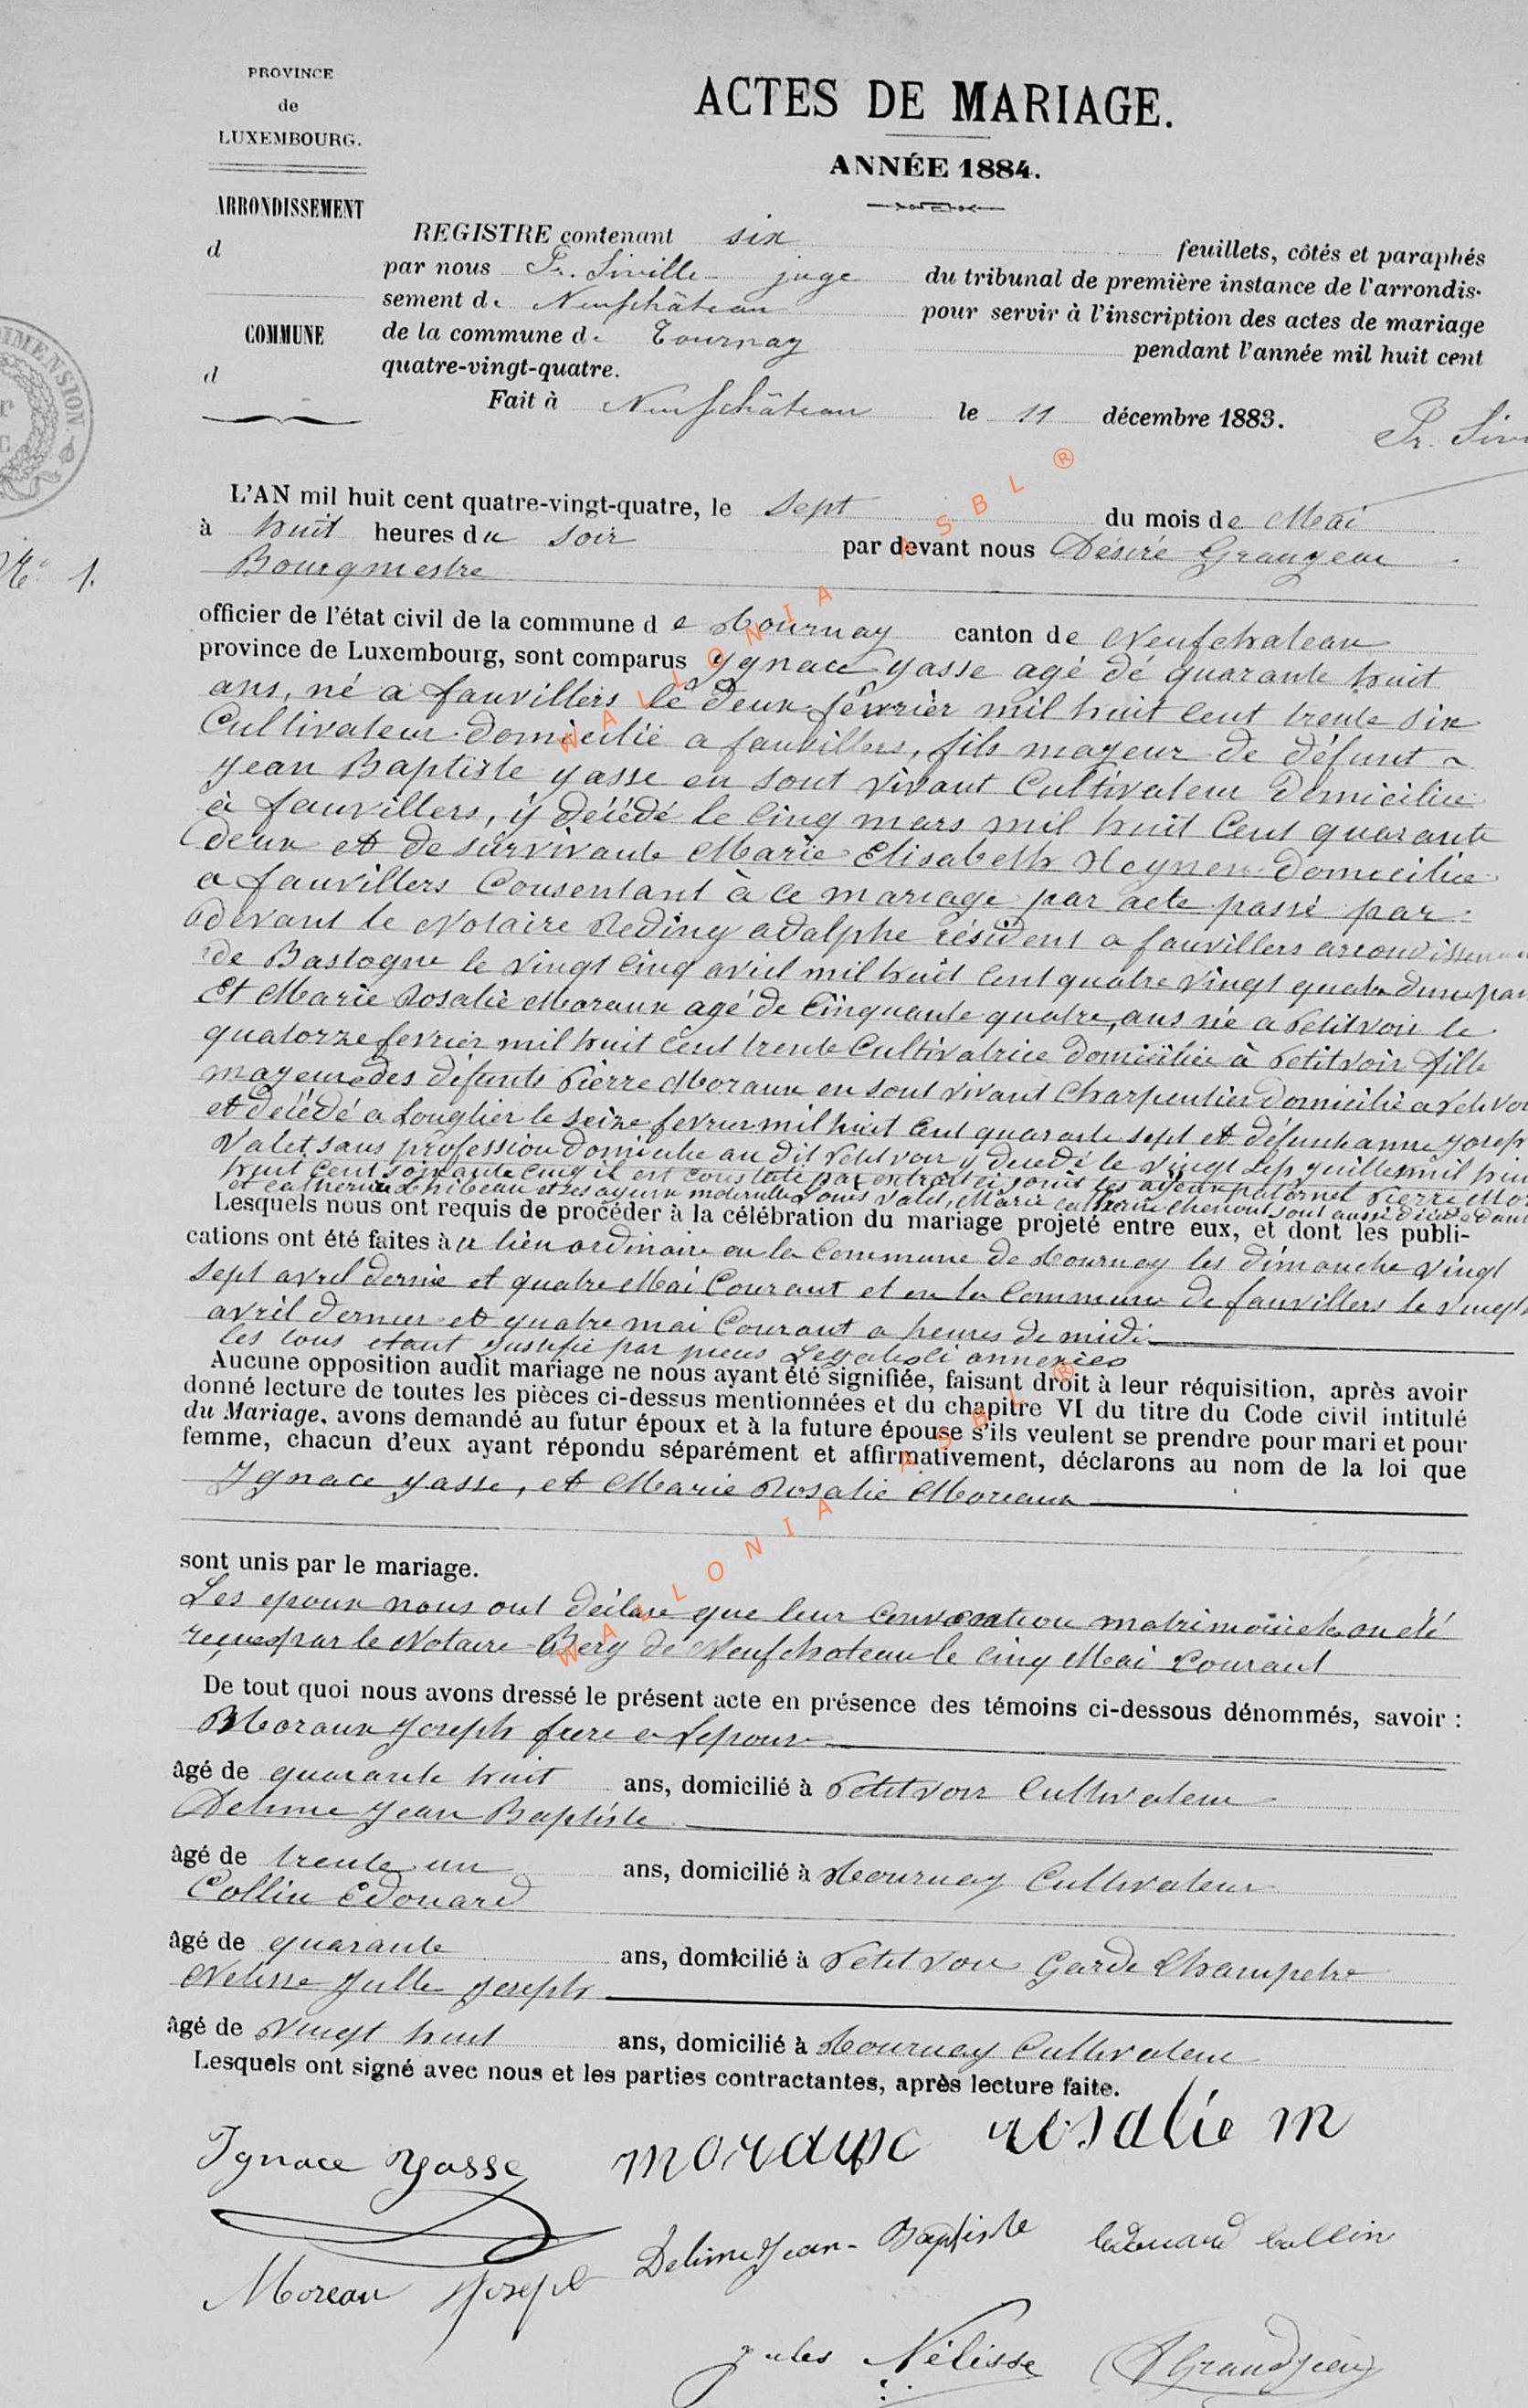 PROVINCE
de
LUXEMBOURG.
ARRONDISSEMENT
d
COMMUNE
d
DIMENSION
No 1.
ACTES DE MARIAGE.
ANNÉE 1884.
REGISTRE contenant six feuillets, côtés et paraphés
par nous Pr. Siville juge du tribunal de première instance de l'arrondis-
sement de Neufchâteau pour servir à l'inscription des actes de mariage
de la commune de Tournay pendant l'année mil huit cent
quatre-vingt-quatre.
Fait à Neufchâteau le 11 décembre 1883. Pr. Siv
L'AN mil huit cent quatre-vingt-quatre, le Sept du mois de Mai
à huit heures du soir par devant nous Désiré Grangean
Bourgmestre
officier de l'état civil de la commune de Tournay canton de Neufchateau
province de Luxembourg, sont comparus Ygnace Yasse agé dé quarante huit
ans, né a fauvillers le deux février mil huit cent trente six
Cultivateur domicilié a fauvillers, fils mayeur de défunt
Jean Baptiste yasse en sont vivant Cultivateur Domicilié
à fauvillers, y décédé le Cinq mars mil huit Cent quarante
deux et de survivante Marie Elisabeth Heynen Domiciliée
a fauvillers Consentant à ce mariage par acte passé par
devant le Notaire Reding adalphe résident a fauvillers arrondissement
de Bastogne le vingt cinq avril mil huit Cent quatre vingt quatre dune part
Et Marie Rosalie Moraux agé de Cinquante quatre, ans née a Petitvoir le
quatorze fevrier mil huit Cent trente Cultivatrice domiciliée à Petitvoir fille
mayeure des défunts Pierre Moraux en sont vivant Charpentier domicilié a Petitvoir
et décédé a Longlier le seize fevrier mil huit Cent quarante sept et défunte anne Joseph
Valet sans profession domiciliée au dit Petitvoir y décédé le vingt sep juillet mil hui
huit Cent soixante cinq il est constaté par extrait ci joint les ayeux paternel Pierre Mor
et Catherine Thibeau et ses ayeux maternelles Louis Valet, Marie Catherine Chenout sont aussi décédé dans
Lesquels nous ont requis de procéder à la célébration du mariage projeté entre eux, et dont les publi-
cations ont été faites au lieu ordinaire en la Commune de Tournay les dimanche vingt
sept avril dernié et quatre Mai Courant et en la Commune de fauvillers le vingt
avril dernier et quatre mai Courant a heures de midi
les tous etant justifié par pieces Legales ci annexées
Aucune opposition audit mariage ne nous ayant été signifiée, faisant droit à leur réquisition, après avoir
donné lecture de toutes les pièces ci-dessus mentionnées et du chapitre VI du titre du Code civil intitulé
du Mariage, avons demandé au futur époux et à la future épouse s'ils veulent se prendre pour mari et pour
femme, chacun d'eux ayant répondu séparément et affirmativement, déclarons au nom de la loi que
Ygnace yasse, et Marie Rosalie Moreaux
sont unis par le mariage.
Les epoux nous ont déclare que leur matrimoniale on été
reçues par le Notaire Berg de Neufchateau le cinq Mai Courant
De tout quoi nous avons dressé le présent acte en présence des témoins ci-dessous dénommés, savoir :
Moraux Joseph frere a Lepouse
âgé de quarante huit ans, domicilié à Petitvoir Cultivateur
Delime Jean Baptiste
âgé de trente un ans, domicilié à Tournay Cultivateur
Collin Edouard
âgé de quarante ans, domicilié à Petitvoir Garde Champetre
Nelisse Julle Joseph
âgé de Vingt huit ans, domicilié à Tournay Cultivateur
Lesquels ont signé avec nous et les parties contractantes, après lecture faite.
Ignace Yasse moraux rosalie m
Moreau Joseph Delime Jean-Baptiste Edouard Collin
jules Nélisse DGrandjean
WALLONIA ASBL ®
WALLONIA ASBL ®